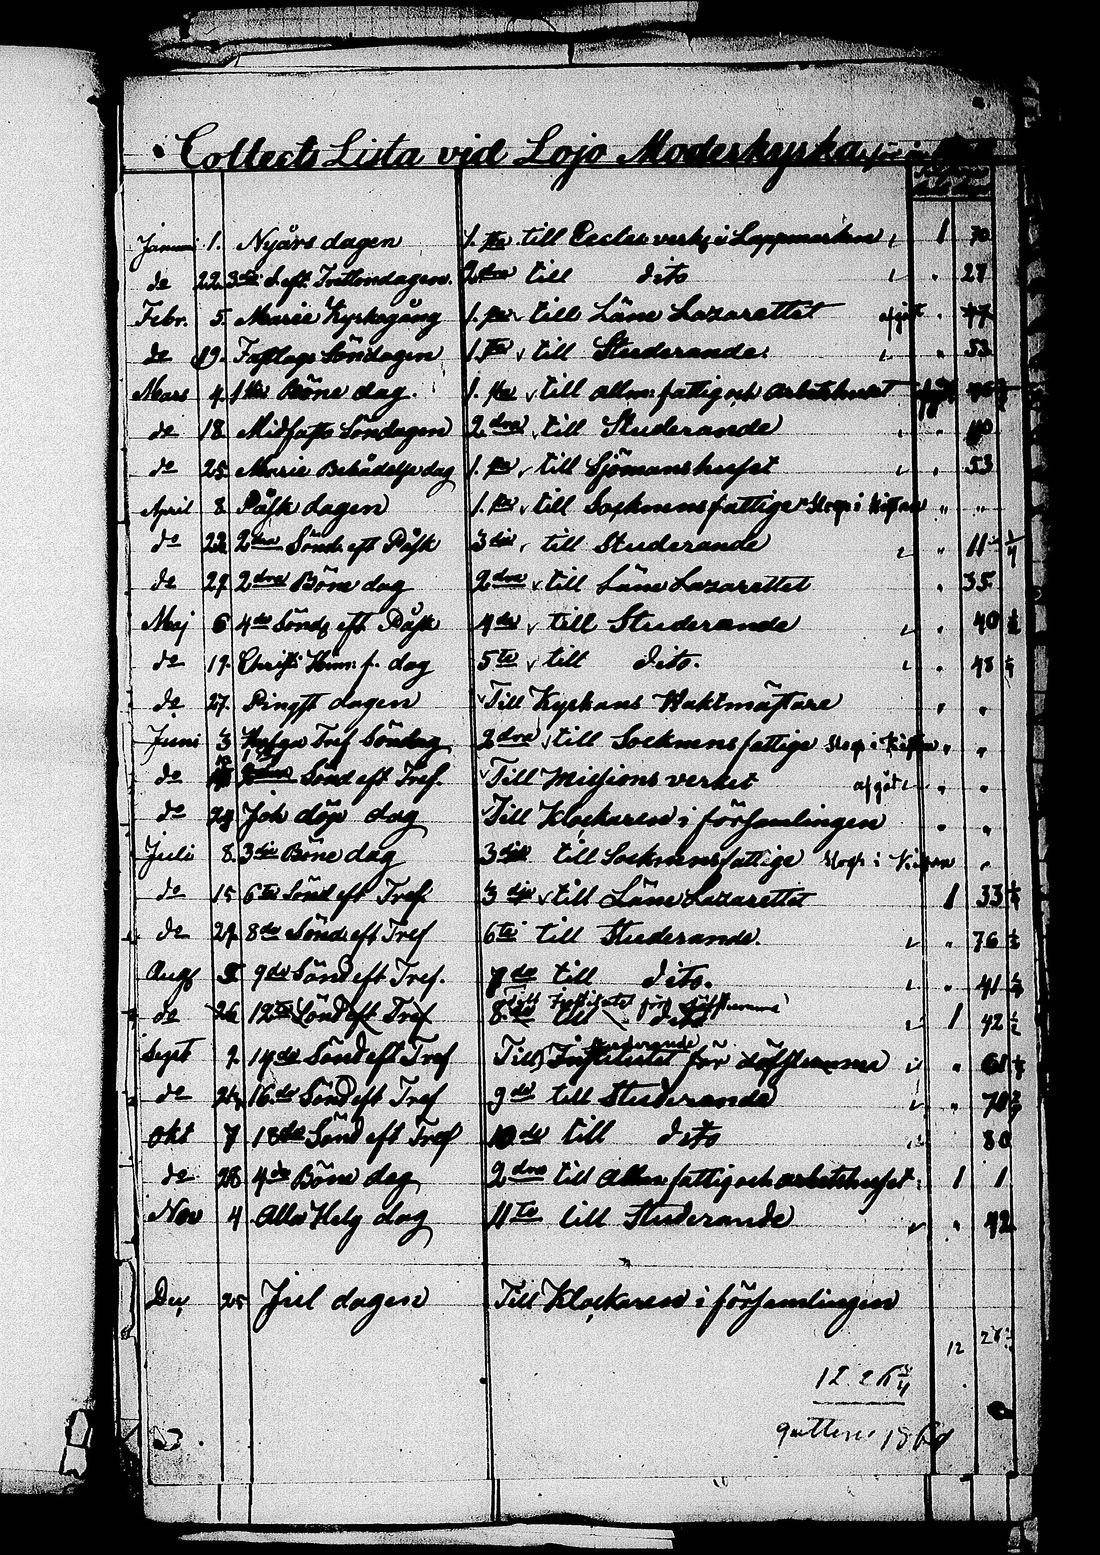 Collects Lista vid Lojo Moderkyrka för år
Januari 1. Nyårs dagen 1.sta till Eccles: verkz i Lappmarken 1 70
de 22. 3die S. eft. Trettondagen. 2dra till dito 27
Febr. 5. Mariæ Kyrkogång 1.sta till Läne Lazarettet afgått 47
de 19. Fastlags Söndagen 1.sta till Studerande. 53
Mars 4. 1sta Böne dag. 1.sta till allm: fattig och arbetshuset
de 18. Midfasto Söndagen 2dra till Studerande 40
de 25. Mariæ Bebådelse dag 1.sta till Sjömanshuset 53
April 8. Påsk dagen 1.sta till Socknens fattige Slogs i Kistan " "
de 22 2dra Sönd. eft Påsk 3die till Studerande 11 1/4
de 27. 2dra Böne dag 2dra till Läne Lazarettet 35
Maj 6 4de Söndg eft Påsk 4de till Studerande 40 1/2
de 17. Christi Him. f. dag 5te till dito. 48 1/4
de 27. Pingst dagen Till Kyrkans Waktmästare
Juni 3 Helga Tref Söndag 2dra till Socknens fattige Slogs i Kistan
de Sönd eft Tref. Till Missions verket afgått
de 24 Joh döp dag Till Klockaren i församlingen
Juli 8. 3die Böne dag 3die till Socknens fattige Slogs i Kistan
de 15 6te Sönd eft Tref 3die till Läne Lazarettet 1 33 1/4
de 29. 8de Sönd eft Tref 6te till Studerande. 76 1/2
Aug 9de Sönd eft Tref. 7de till dito. 41
till Institutet för döfstumme
de 26 12te Sönd eft Tref 8de till dito 1 42 1/2
Studerande
Sept 2. 14de Sönd eft Tref Till Institutet för döfstumma 61
de 16.de Sönd eft Tref 9de till Studerande 70
Okt 7 18de Sönd eft Tref 10de till dito 80
de 28 4de Böne dag 2dra till Allm fattig och arbetshuset 1 1
Nov 4 Alla Helg dag 11te till Studerande 42
Dec 25 Jul dagen Till Klockaren i församlingen
12 26
12 26 3/4